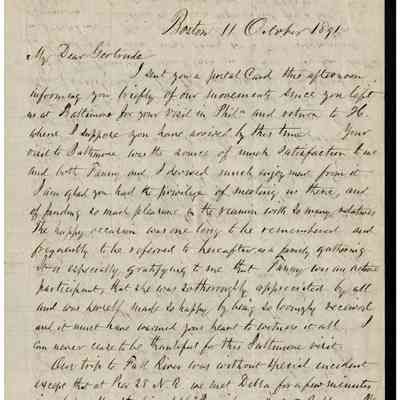 Boston 11 October 1891
My Dear Gertrude
I sent you a postal Card this afternoon
informing you briefly of our movements since you left
us at Baltimore for your visit in Phila and return to H.
where I suppose you have arrived by this time. Your
visit to Baltimore was the source of much satisfaction to us
and both Fanny and I derived much enjoyment from it
I am glad you had the privilege of meeting us there, and
of finding so much pleasure in the reunion with so many relatives
The happy occasion was one long to be remembered and
frequently to be referred to hereafter as a family gathering
It is especially gratifying to me that Fanny was an active
participant, that she was so thoroughly appreciated by all
and was herself made so happy, by being so lovingly received
and it must have warmed your heart to witness it all. I
can never cease to be thankful for this Baltimore visit.
Our trip to Fall River was without special incident
except that at Pier 28 N.R. we met Della for a few minutes